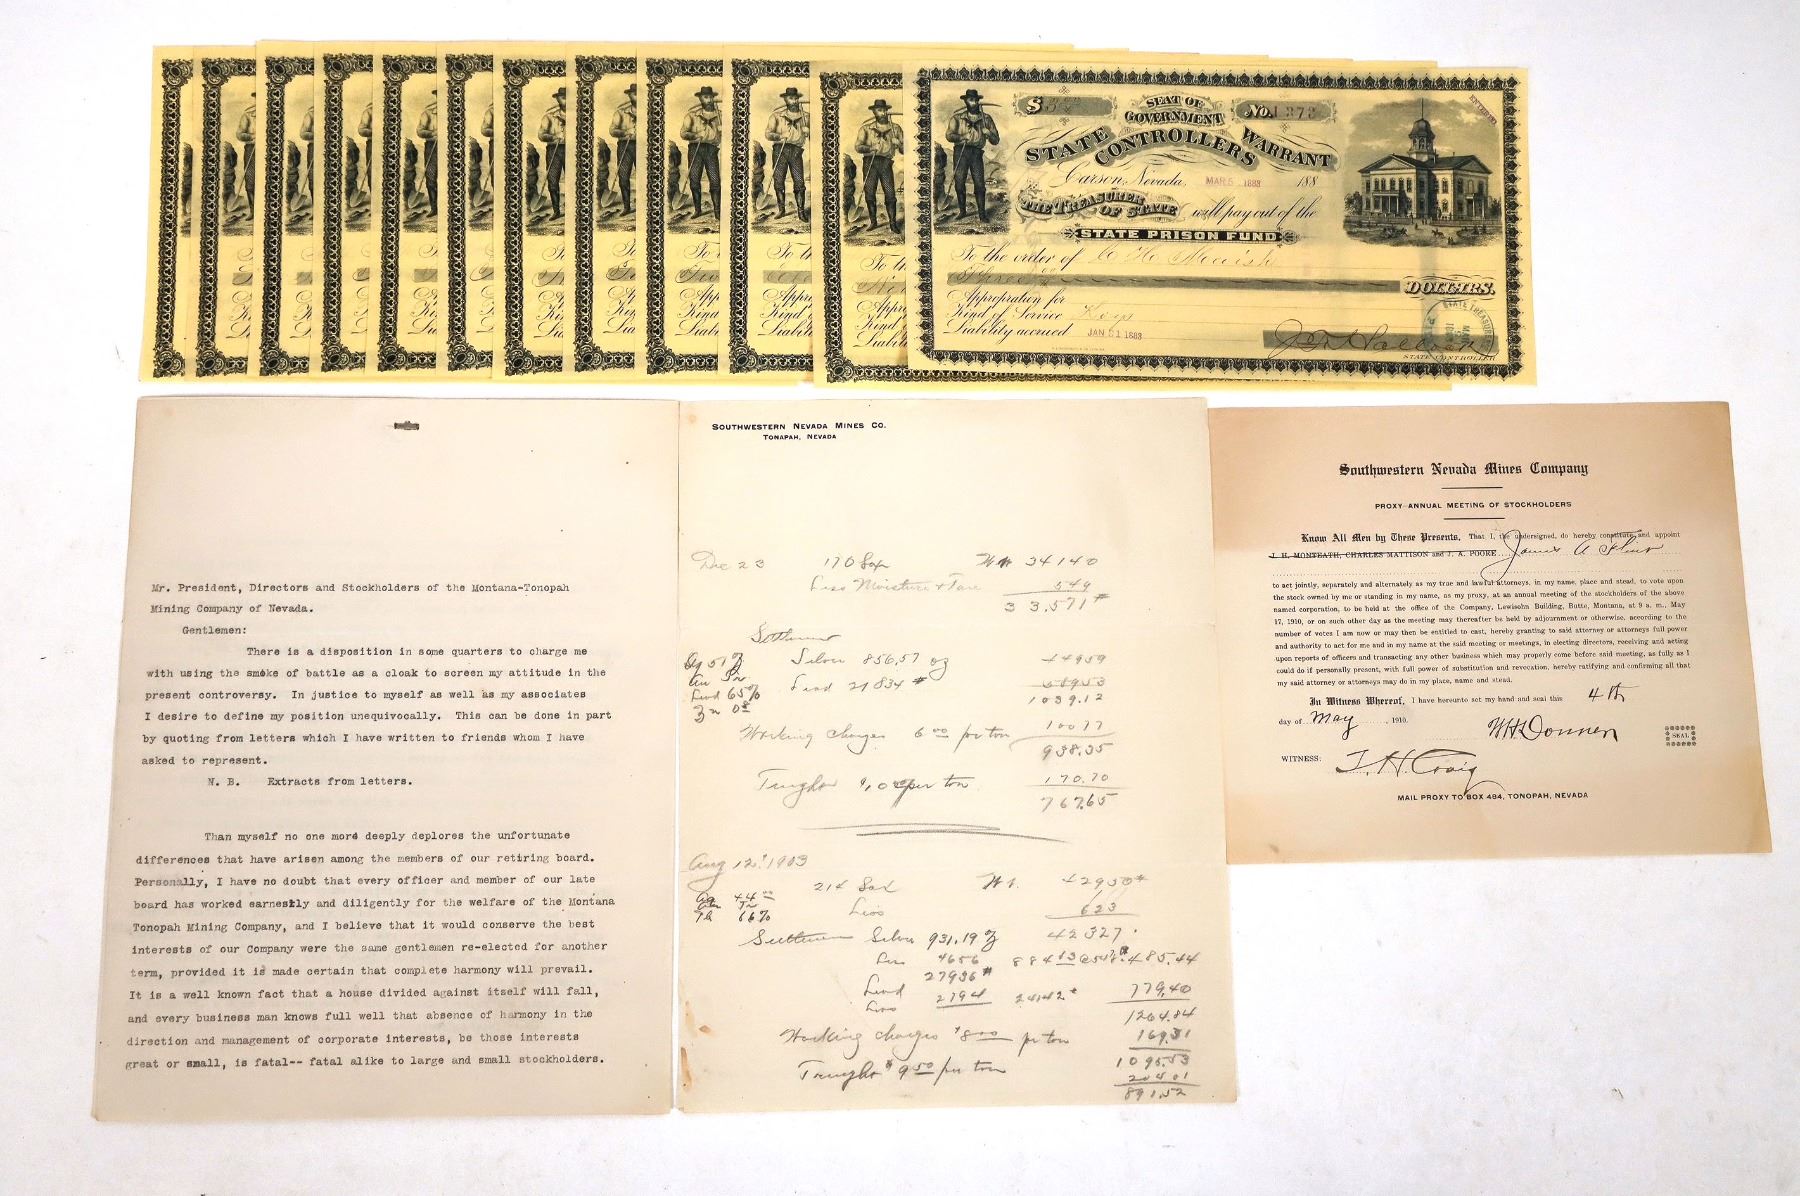 $ 3 00
SEAT OF GOVERNMENT
No. 1373
STATE CONTROLLERS WARRANT
Carson, Nevada, MAR 5 1883 188
THE TREASURER OF STATE will pay out of the
STATE PRISON FUND
To the order of
Three DOLLARS.
Appropriation for
Kind of Service Keys
Liability accrued JAN 31 1883
STATE CONTROLLER
Mr. President, Directors and Stockholders of the Montana-Tonopah
Mining Company of Nevada.
Gentlemen:
There is a disposition in some quarters to charge me
with using the smoke of battle as a cloak to screen my attitude in the
present controversy. In justice to myself as well as my associates
I desire to define my position unequivocally. This can be done in part
by quoting from letters which I have written to friends whom I have
asked to represent.
N. B. Extracts from letters.
Than myself no one more deeply deplores the unfortunate
differences that have arisen among the members of our retiring board.
Personally, I have no doubt that every officer and member of our late
board has worked earnestly and diligently for the welfare of the Montana
Tonopah Mining Company, and I believe that it would conserve the best
interests of our Company were the same gentlemen re-elected for another
term, provided it is made certain that complete harmony will prevail.
It is a well known fact that a house divided against itself will fall,
and every business man knows full well that absence of harmony in the
direction and management of corporate interests, be those interests
great or small, is fatal-- fatal alike to large and small stockholders.
SOUTHWESTERN NEVADA MINES CO.
TONAPAH, NEVADA
Dec 23 170 Sax Wt 34140
Less Moisture + Tare 549
33,571 #
Settlement
Ag 51 oz Silver 856,57 oz
Au Tr
Lead 65% Lead 21834 #
1039.12
Working charges 6 00 per ton 100 77
938.35
170.70
767.65
Aug 12, 1903
214 Sax Wt. 42950 #
Ag 44 00
Au Tr
66% Less 623
Settlement Silver 931.19 oz 42327
Less 4656 485.44
27936 #
Lead 2794 24142 # 779.40
Less
1264.84
Working charges $8 00 per ton 169.31
1095.53
$9 50 per ton 204 01
891.52
Southwestern Nevada Mines Company
PROXY-ANNUAL MEETING OF STOCKHOLDERS
Know All Men by These Presents, That I, the undersigned, do hereby constitute and appoint
J. H. MONTEATH, CHARLES MATTISON and J. A. POORE James A Flint
to act jointly, separately and alternately as my true and lawful attorneys, in my name, place and stead, to vote upon
the stock owned by me or standing in my name, as my proxy, at an annual meeting of the stockholders of the above
named corporation, to be held at the office of the Company, Lewisohn Building, Butte, Montana, at 9 a. m., May
17, 1910, or on such other day as the meeting may thereafter be held by adjournment or otherwise, according to the
number of votes I am now or may then be entitled to cast, hereby granting to said attorney or attorneys full power
and authority to act for me and in my name at the said meeting or meetings, in electing directors, receiving and acting
upon reports of officers and transacting any other business which may properly come before said meeting, as fully as I
could do if personally present, with full power of substitution and revocation, hereby ratifying and confirming all that
my said attorney or attorneys may do in my place, name and stead.
In Witness Whereof, I have hereunto set my hand and seal this 4th
day of May, 1910. W H Donner
SEAL
WITNESS: J. H. Craig
MAIL PROXY TO BOX 484, TONOPAH, NEVADA